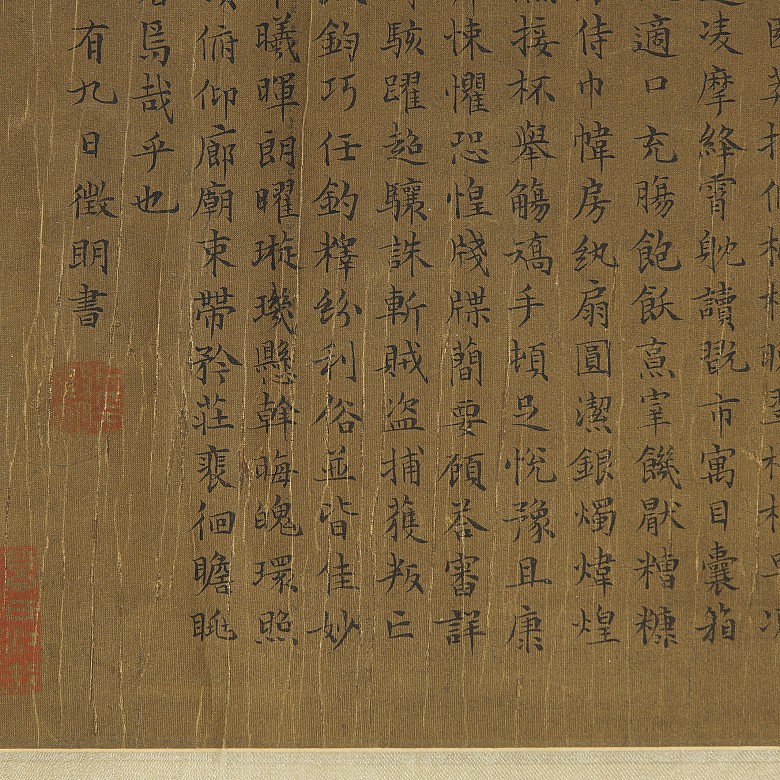 園莽抽條枇杷晚翠梧桐早凋
遊凌摩絳霄耽讀翫市寓目囊箱
適口充腸飽飫烹宰饑厭糟糠
侍巾幃房紈扇圓潔銀燭煒煌
接杯舉觴矯手頓足悅豫且康
悚懼恐惶牋牒簡要顧荅審詳
駭躍超驤誅斬賊盜捕獲叛亡
鈞巧任釣釋紛利俗並皆佳妙
曦暉朗曜璇璣懸斡晦魄環照
俯仰廊廟束帶矜莊裵徊瞻眺
焉哉乎也
有九日徵明書